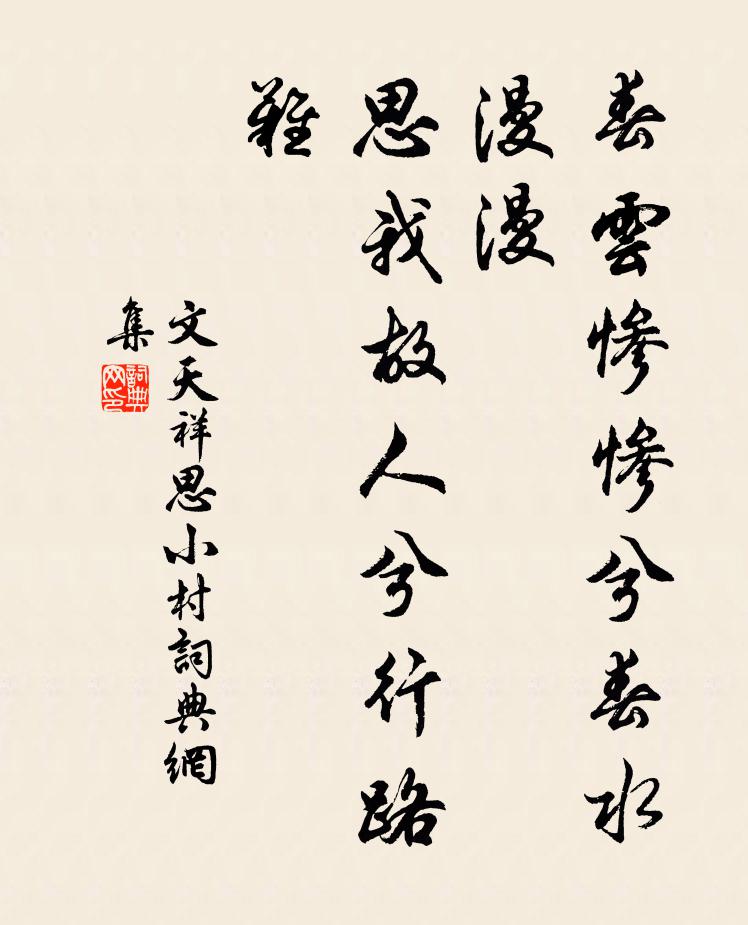 春雲慘慘兮春水
漫漫
思我故人兮行路
難
文天祥思小村詞典網
集
詞典
网印